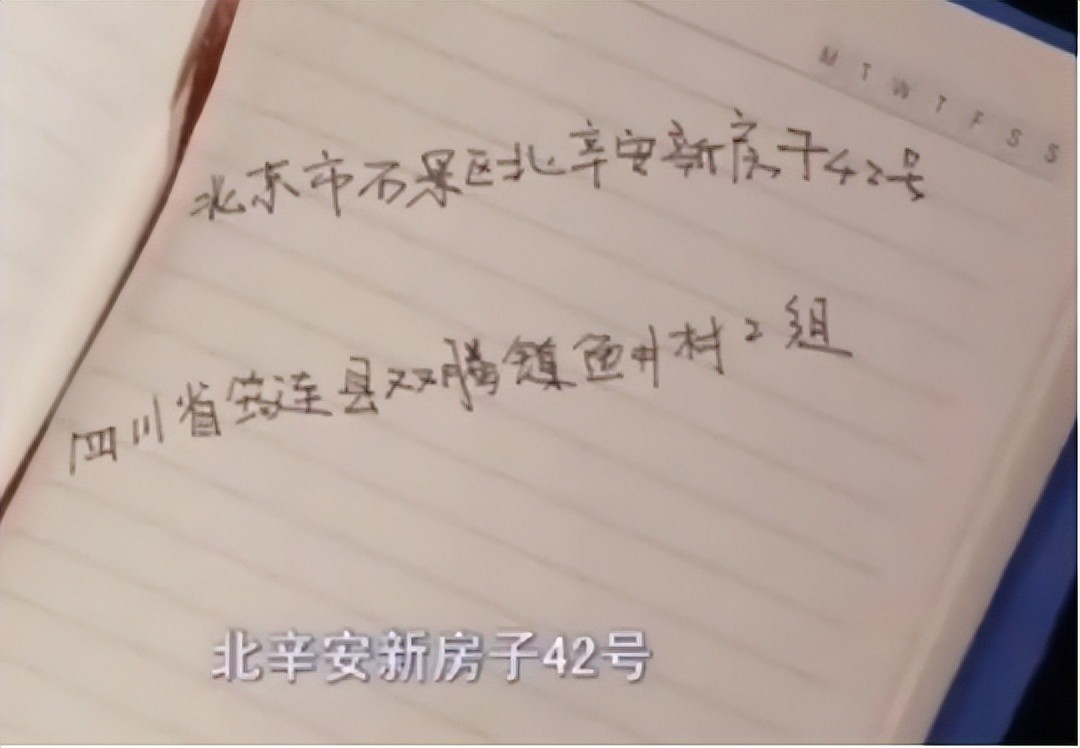 M T W T F S S
北京市石景区北辛安新房子42号
四川省筠连县双腾镇鱼井村2组
北辛安新房子42号